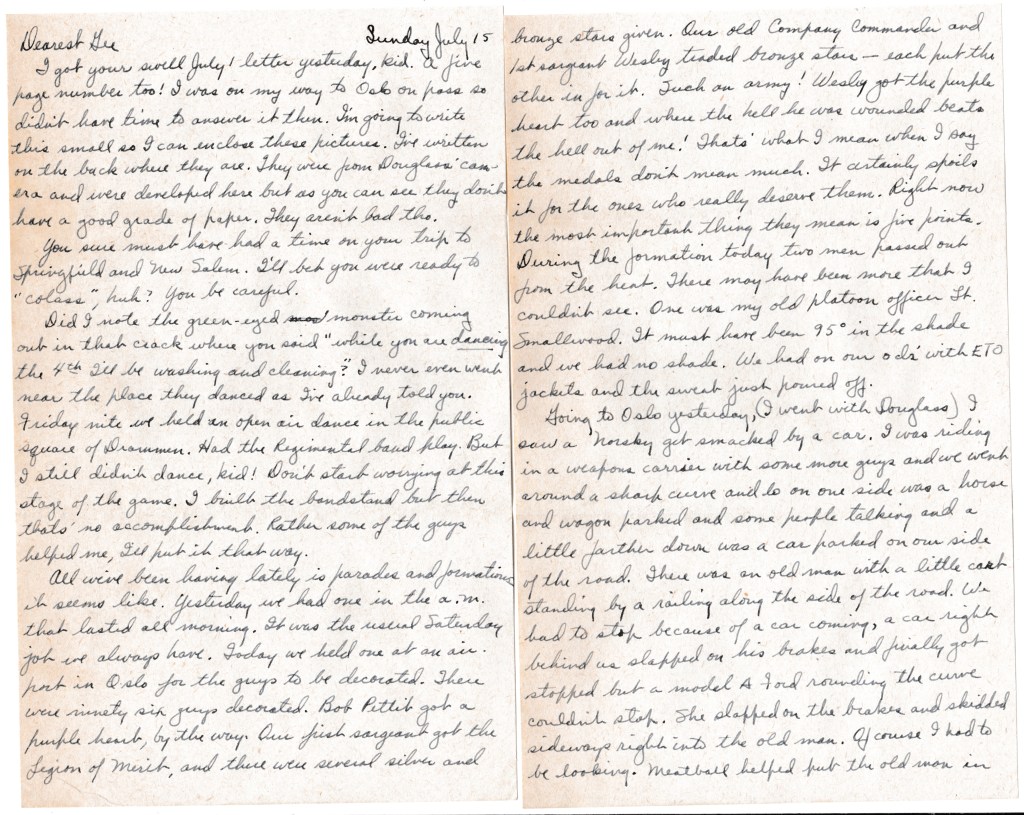 Dearest Gee Sunday July 15
I got your swell July 1 letter yesterday, kid. A five
page number too! I was on my way to Oslo on pass so
didn't have time to answer it then. I'm going to write
this small so I can enclose these pictures. I've written
on the back where they are. They were from Douglass' cam-
era and were developed here but as you can see they don't
have a good grade of paper. They aren't bad tho.
You sure must have had a time on your trip to
Springfield and New Salem. I'll bet you were ready to
"colass", huh? You be careful.
Did I note the green-eyed monster coming
out in that crack where you said "while you are dancing
the 4th I'll be washing and cleaning"? I never even went
near the place they danced as I've already told you.
Friday nite we held an open air dance in the public
square of Drammen. Had the Regimental band play. But
I still didn't dance, kid! Don't start worrying at this
stage of the game. I built the bandstand but then
thats' no accomplishment. Rather some of the guys
helped me, I'll put it that way.
All we've been having lately is parades and formations
it seems like. Yesterday we had one in the a.m.
that lasted all morning. It was the usual Saturday
job we always have. Today we held one at an air-
port in Oslo for the guys to be decorated. There
were ninety six guys decorated. Bob Pettit got a
purple heart, by the way. Our first sargeant got the
Legion of Merit, and there were several silver and
bronze stars given. Our old Company Commander and
1st sargeant Wesley traded bronze stars — each put the
other in for it. Such an army! Wesley got the purple
heart too and where the hell he was wounded beats
the hell out of me! Thats' what I mean when I say
the medals don't mean much. It certainly spoils
it for the ones who really deserve them. Right now
the most important thing they mean is five points.
During the formation today two men passed out
from the heat. There may have been more that I
couldn't see. One was my old platoon officer Lt.
Smallwood. It must have been 95° in the shade
and we had no shade. We had on our ods' with ETO
jackets and the sweat just poured off.
Going to Oslo yesterday, (I went with Douglass) I
saw a Norsky get smacked by a car. I was riding
in a weapons carrier with some more guys and we went
around a sharp curve and lo on one side was a horse
and wagon parked and some people talking and a
little farther down was a car parked on our side
of the road. There was an old man with a little cart
standing by a railing along the side of the road. We
had to stop because of a car coming, a car right
behind us slapped on his brakes and finally got
stopped but a model A Ford rounding the curve
couldn't stop. She slapped on the brakes and skidded
sideways right into the old man. Of course I had to
be looking. Meatball helped put the old man in